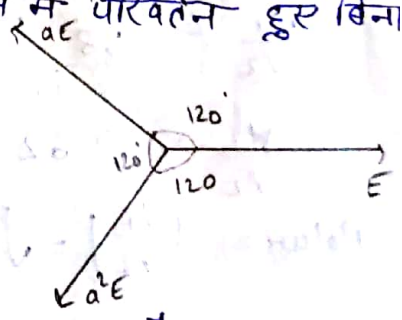 में परिवर्तन हुए बिना
aE
120°
120°
120
E
a²E